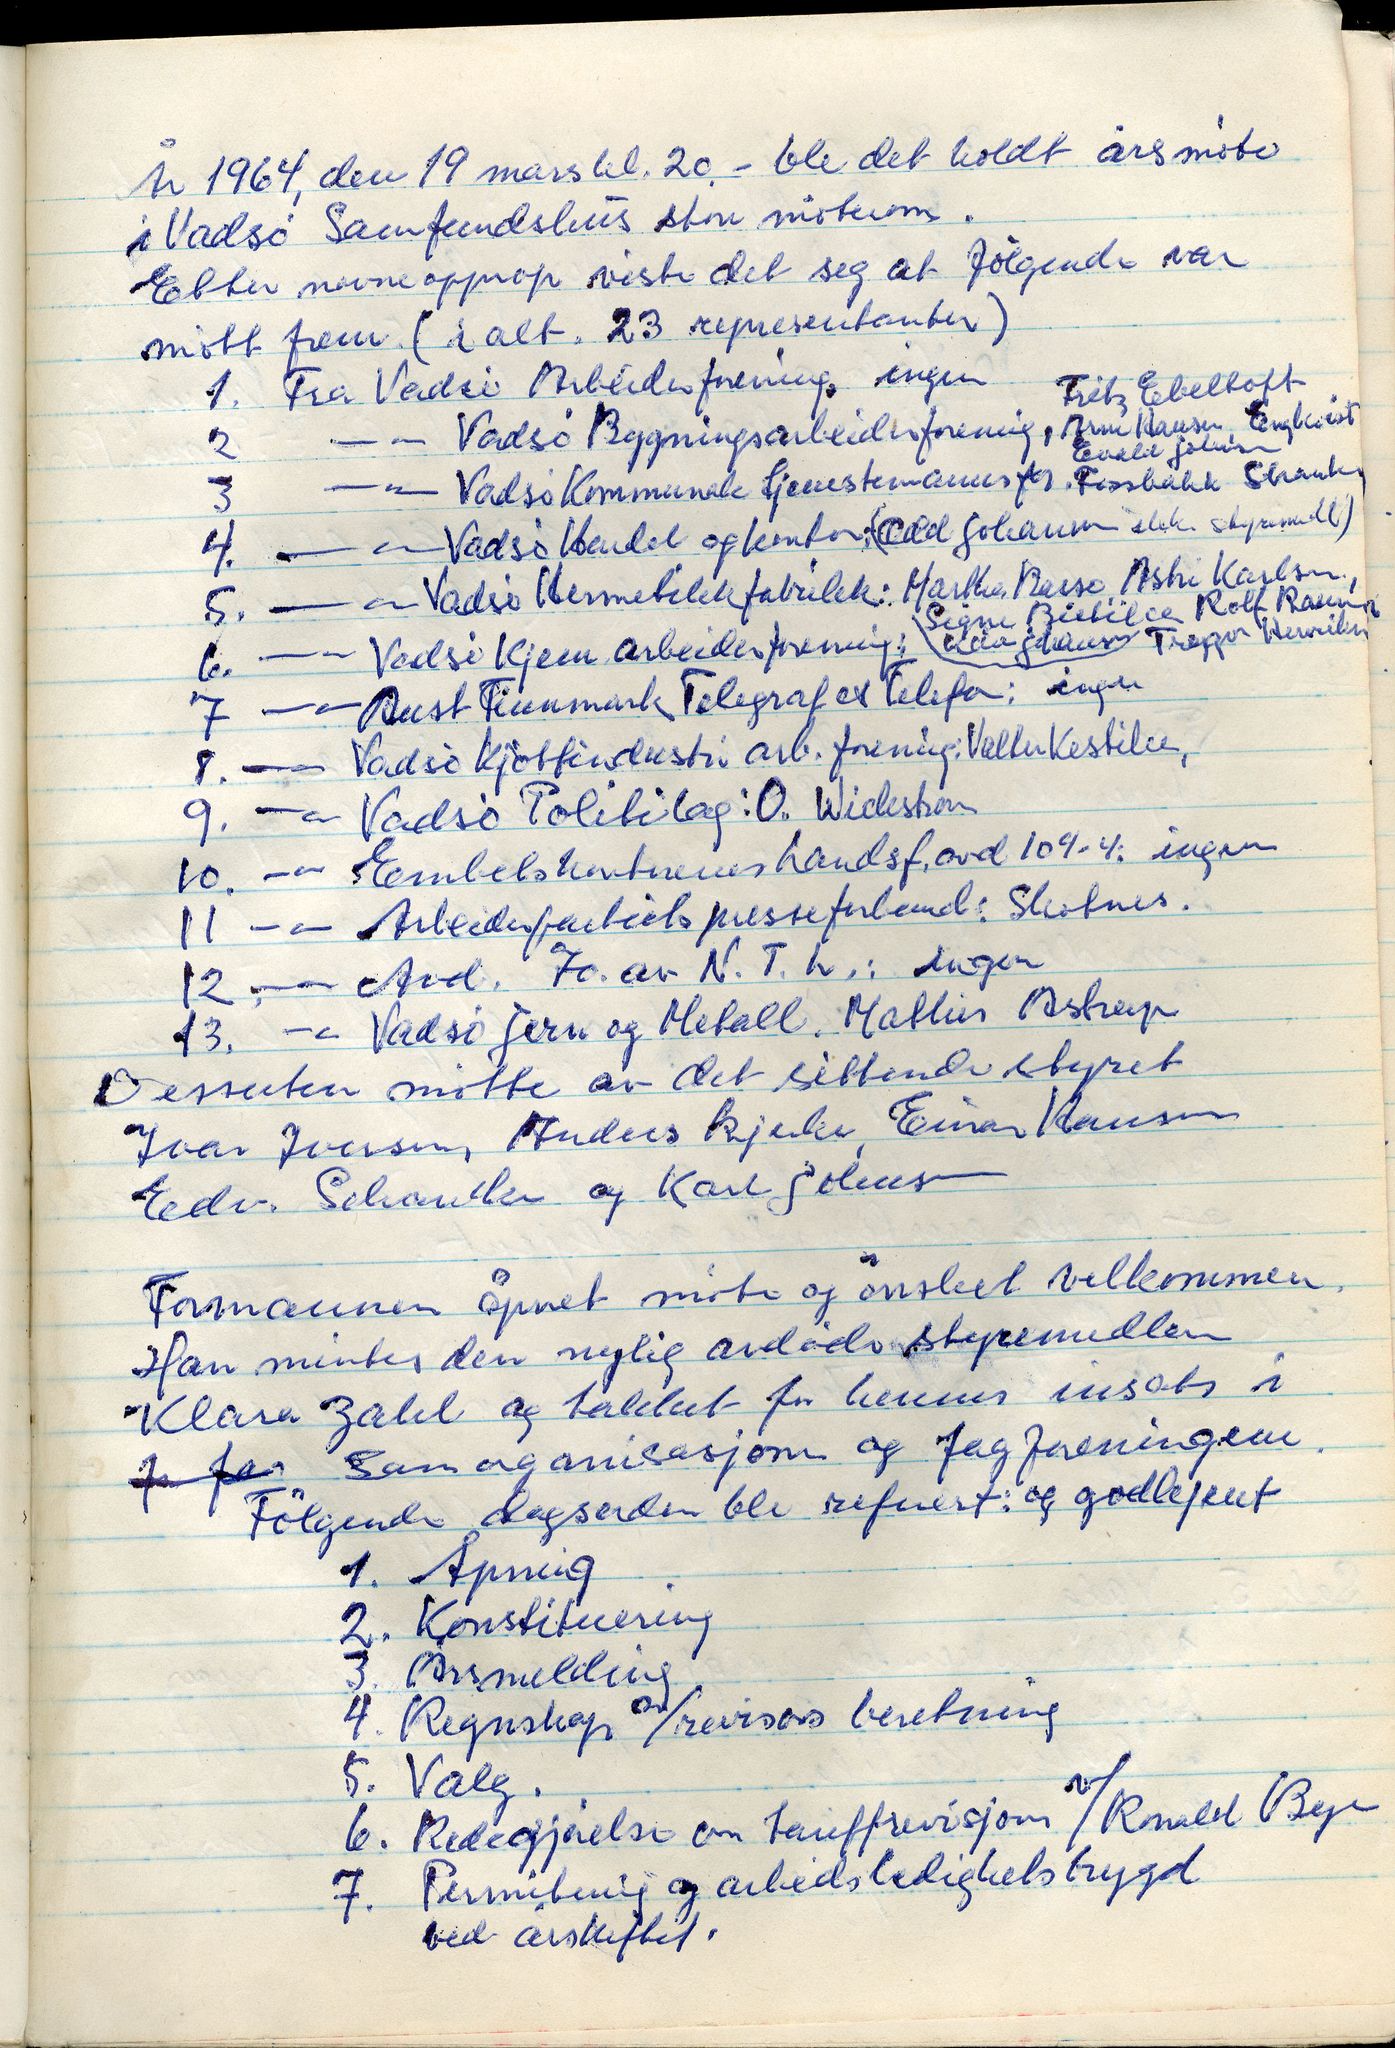 År 1964, den 19 mars kl. 20.- ble det holdt årsmöte
i Vadsö Samfundshus store möterom.
Etter navneopprop viste det seg at fölgende var
mött frem. (i alt. 23 representanter)
1. Fra Vadsö Arbeiderforening, ingen
2 —"— Vadsö Bygningsarbeiderforening, Fritz Ebeltoft Arne Hansen Engkvist Evald Johnsen
3 —"— Vadsö Kommunale tjenestemannsfor. Fossbakk
4. —"— Vadsö Handel og kontor: (Odd Johansen styremedl)
5. —"— Vadsö Hermetikkfabrikk: Martha Basso, Astri Karlsen,
Signe Rolf
6. —"— Vadsö Kjem. arbeiderforening: Henriksen
7 —"— Aust Finnmark Telegraf og Telefon: ingen
8. —"— Vadsö Kjöttindustri arb. forening: Valter Kestila,
9. —"— Vadsö Politilag: O. Wickstrøm
10. —"— Embetskontorenes Landsf. avd 109-4: ingen
11 —"— Arbeiderpartiets presseforbund: Skotnes.
12. —"— Avd. 70. av N. T. L.: ingen
13. —"— Vadsö Jern og Metall. Mathis Astrup
Dessuten mötte av det sittende styret
Ivar Iversen, Anders Einar Hansen
Edv. Schanke og Karl Johnsen
Formannen åpnet möte og önsket velkommen.
Han mintes den nylig avdöde styremedlem
Klara Zahl og takket for hennes insats i
Samorganisasjonen og Fagforeningene.
Fölgende dagsorden ble referert: og godkjent
1. Åpning
2. Konstituering
3. Årsmelding
4. Regnskap m/revisors beretning
5. Valg.
6. Redegjörelse om tariffrevisjonen v/Ronald Bye
7. Permitering og arbeidsledighetstrygd
ved årskiftet.